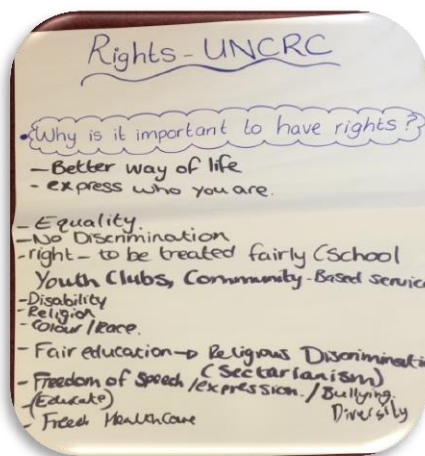 Rights - UNCRC
• Why is it important to have rights?
- Better way of life
- express who you are.
- Equality.
- No Discrimination
- right - to be treated fairly (School
Youth Clubs, Community-Based service
- Disability
- Religion
- Colour / Race.
- Fair education → Religious Discriminati
(Sectarianism)
- Freedom of Speech / expression. / Bullying.
(Educate) Diversity
- Freeh HealthCare